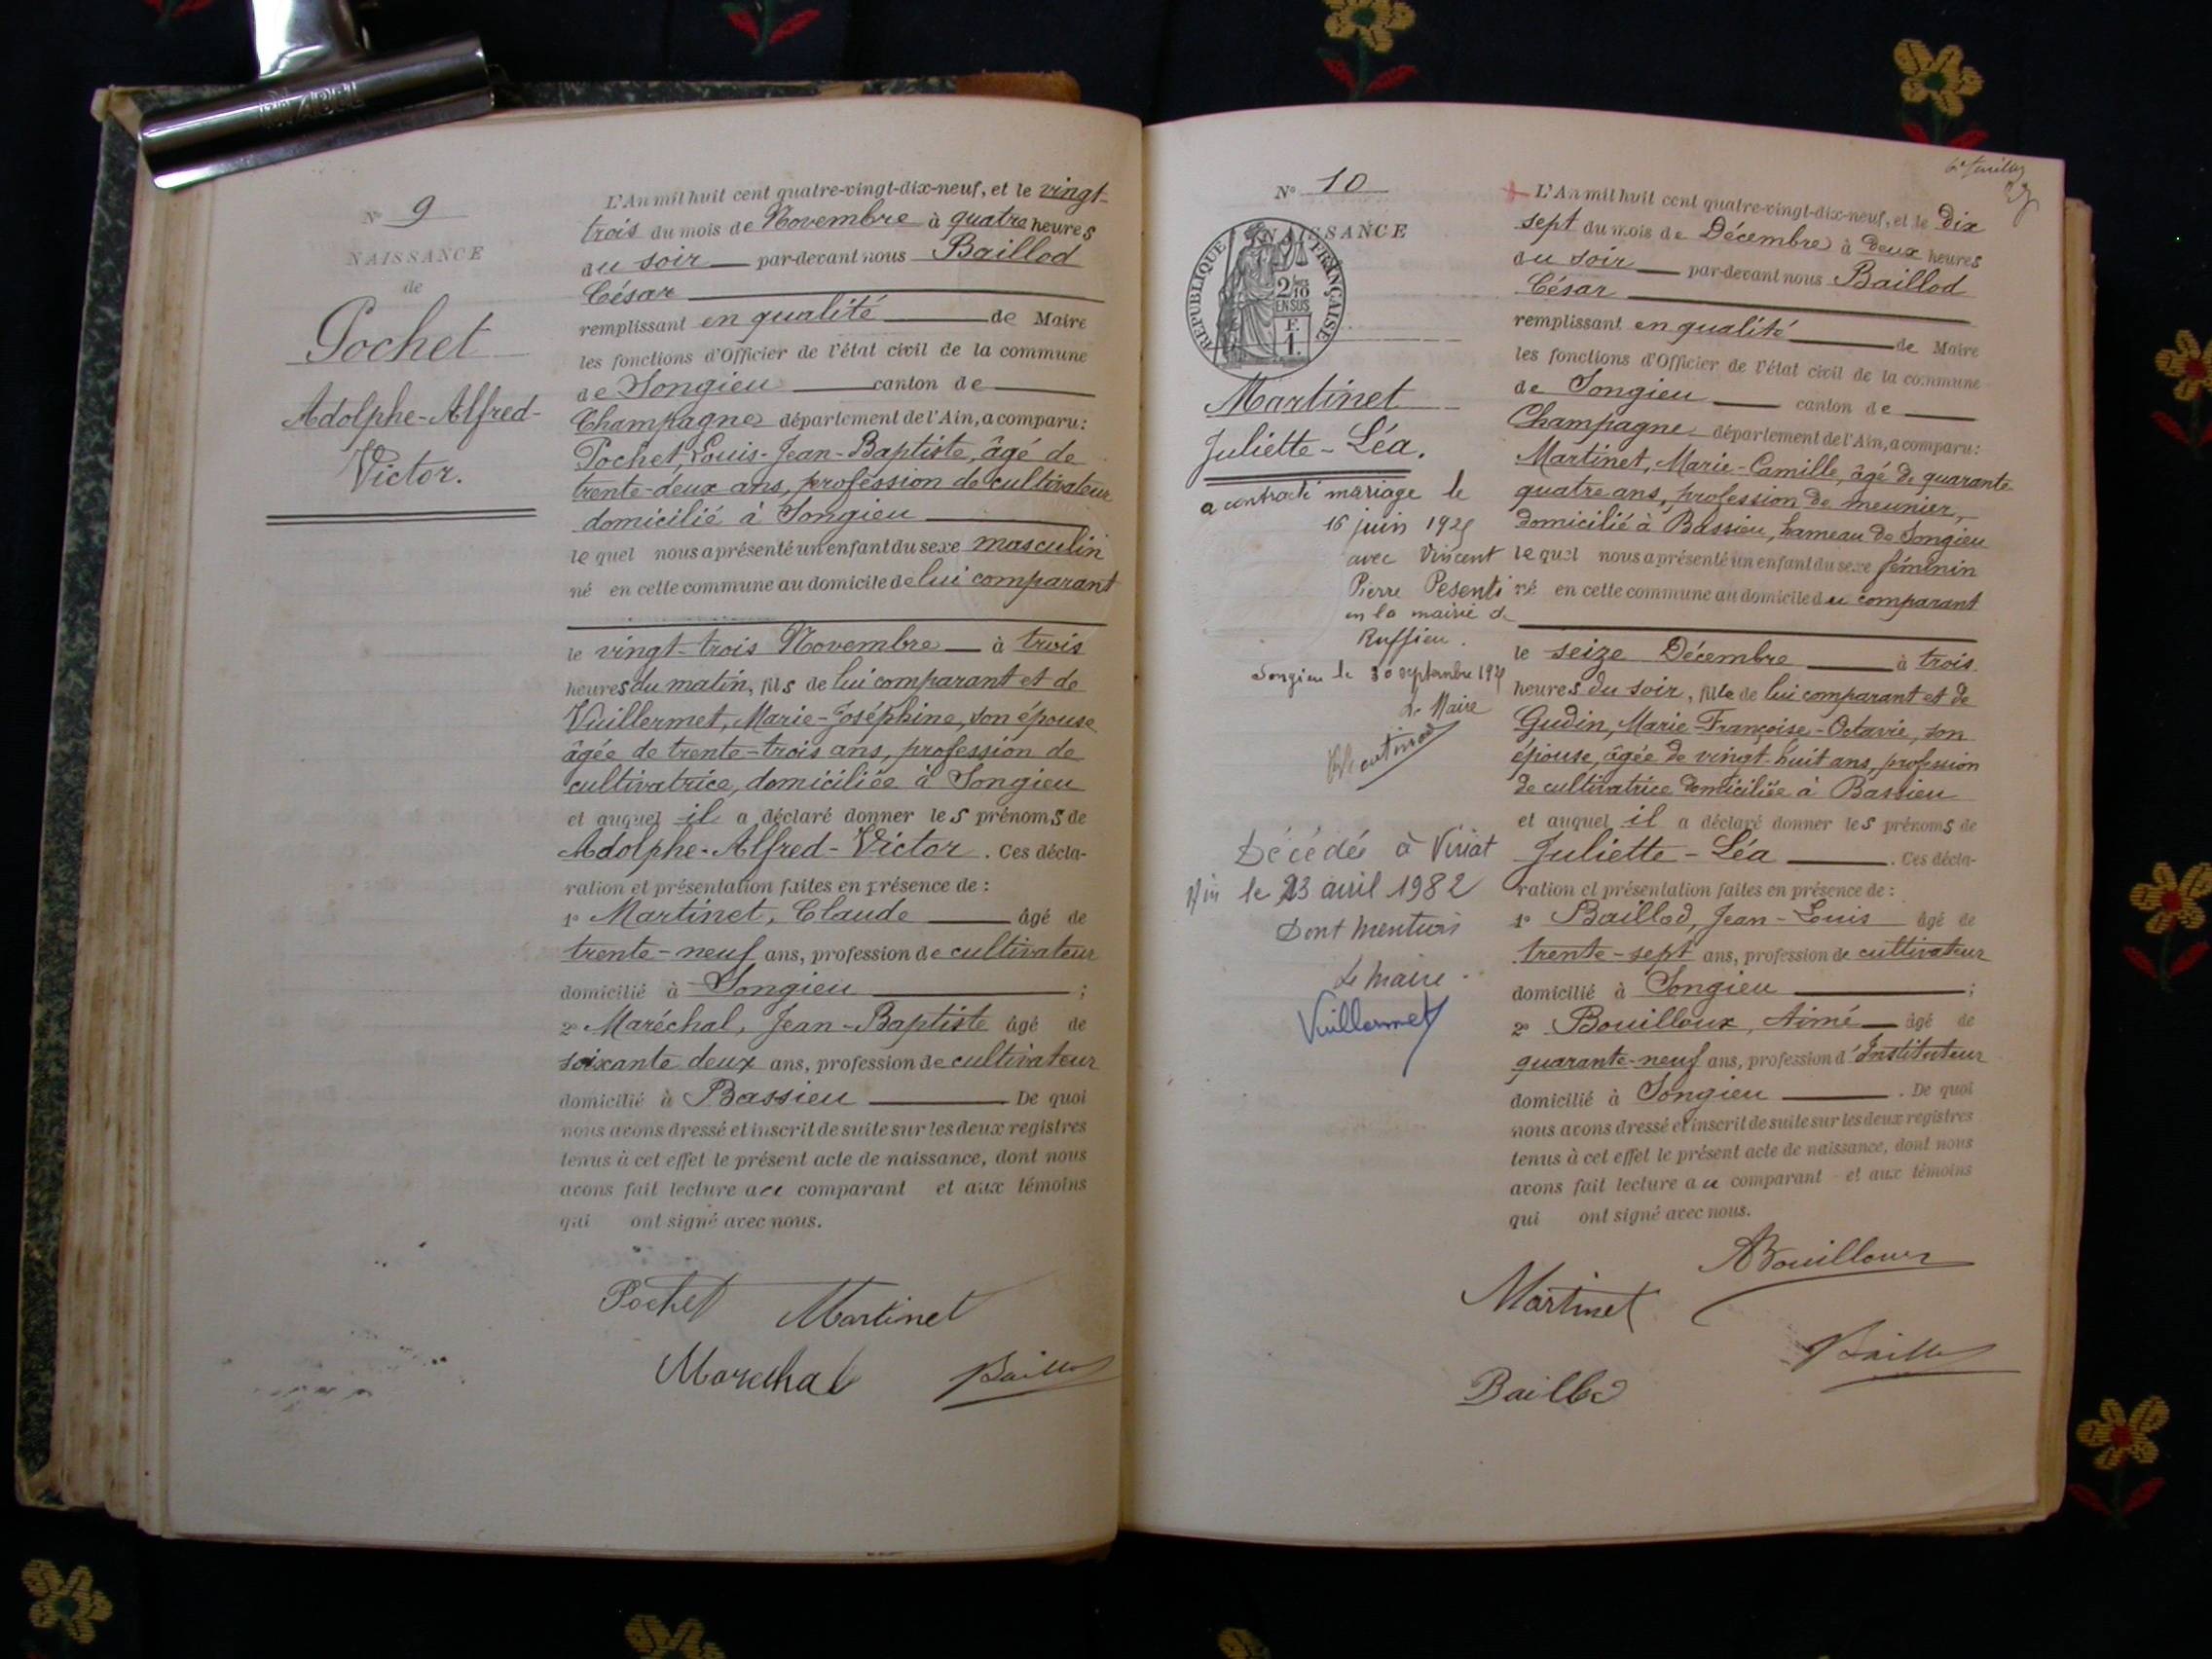 N° 9
NAISSANCE
de
Pochet
Adolphe-Alfred-
Victor.
L'An mil huit cent quatre-vingt-dix-neuf, et le vingt-
trois du mois de Novembre à quatre heures
du soir par-devant nous Baillod
César
remplissant en qualité de Maire
les fonctions d'Officier de l'état civil de la commune
de Songieu canton de
Champagne département de l'Ain, a comparu:
Pochet, Louis-Jean-Baptiste, âgé de
trente-deux ans, profession de cultivateur
domicilié à Songieu
le quel nous a présenté un enfant du sexe masculin
né en cette commune au domicile de lui comparant
le vingt-trois Novembre à trois
heures du matin, fils de lui comparant et de
Vuillermet, Marie-Joséphine, son épouse
âgée de trente-trois ans, profession de
cultivatrice, domiciliée à Songieu
et auquel il a déclaré donner les prénoms de
Adolphe-Alfred-Victor. Ces décla-
ration et présentation faites en présence de :
1° Martinet, Claude âgé de
trente-neuf ans, profession de cultivateur
domicilié à Songieu ;
2° Maréchal, Jean-Baptiste âgé de
soixante deux ans, profession de cultivateur
domicilié à Bassieu De quoi
nous avons dressé et inscrit de suite sur les deux registres
tenus à cet effet le présent acte de naissance, dont nous
avons fait lecture au comparant et aux témoins
qui ont signé avec nous.
Pochet Martinet
Marechal Baillod
N° 10
NAISSANCE
REPUBLIQUE FRANÇAISE
2/10
EN SUS
F.
1.
Martinet
Juliette-Léa.
a contracté mariage le
16 juin 192
avec Vincent
Pierre Pesenti
en la mairie de
Ruffieu.
Songieu le 30 septembre 192
Le Maire
Décédée à Viriat
Ain le 23 avril 1982
Dont mention
Le maire
Vuillermet
L'An mil huit cent quatre-vingt-dix-neuf, et le dix
sept du mois de Décembre à deux heures
du soir par-devant nous Baillod
César
remplissant en qualité de Maire
les fonctions d'Officier de l'état civil de la commune
de Songieu canton de
Champagne département de l'Ain, a comparu:
Martinet, Marie-Camille, âgé de quarante
quatre ans, profession de meunier,
domicilié à Bassieu, hameau de Songieu
le quel nous a présenté un enfant du sexe féminin
né en cette commune au domicile du comparant
le seize Décembre à trois
heures du soir, fille de lui comparant et de
Gudin, Marie-Françoise-Octavie, son
épouse, âgée de vingt-huit ans, profession
de cultivatrice domiciliée à Bassieu
et auquel il a déclaré donner les prénoms de
Juliette-Léa. Ces décla-
ration et présentation faites en présence de :
1° Baillod, Jean-Louis âgé de
trente-sept ans, profession de cultivateur
domicilié à Songieu ;
2° Bouilloux, Aimé âgé de
quarante-neuf ans, profession d'Instituteur
domicilié à Songieu. De quoi
nous avons dressé et inscrit de suite sur les deux registres
tenus à cet effet le présent acte de naissance, dont nous
avons fait lecture au comparant et aux témoins
qui ont signé avec nous.
ABouilloux
Martinet
Baillod
Baillod